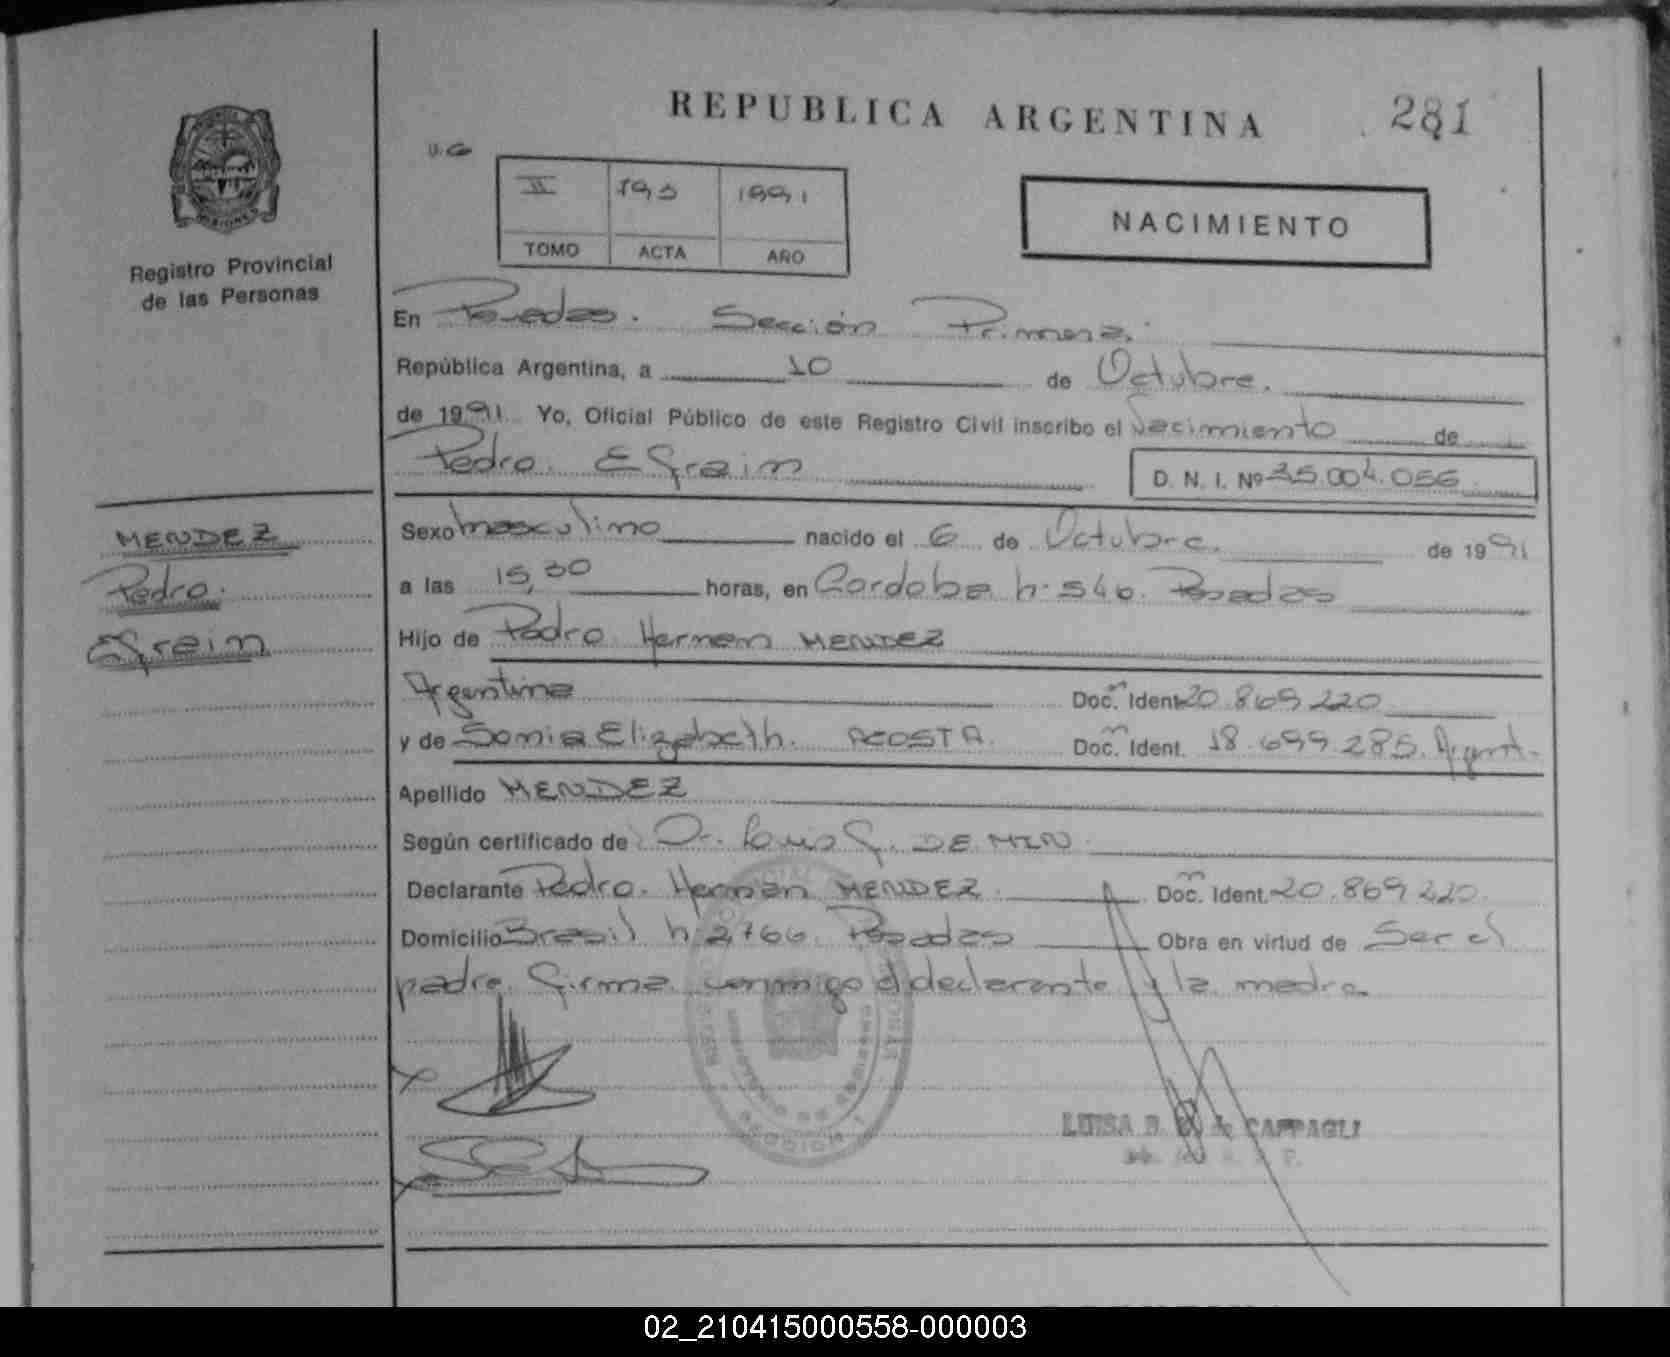 REPUBLICA ARGENTINA
281
Registro Provincial
de las Personas
II 193 1991
TOMO ACTA AÑO
NACIMIENTO
En Posadas. Sección Primera.
República Argentina, a 10 de Octubre.
de 1991 Yo, Oficial Público de este Registro Civil inscribo el Nacimiento de
Pedro Efrain
D. N. I. Nº 35.004.056
MENDEZ
Pedro
Efrain
Sexo masculino nacido el 6 de Octubre de 1991
a las 15,30 horas, en Cordoba n. 546. Posadas
Hijo de Pedro Hernan MENDEZ
Argentina Doc. Ident. 20.869.220
y de Sonia Elizabeth ACOSTA Doc. Ident. 18.699.285. Argent.
Apellido MENDEZ
Según certificado de Dr. Luis G. DE MIN
Declarante Pedro Hernan MENDEZ Doc. Ident. 20.869.220.
Domicilio Brasil n 2766 Posadas Obra en virtud de Ser el
padre. Firma conmigo el declarante y la madre
LUISA CAPPAGLI
02_210415000558-000003